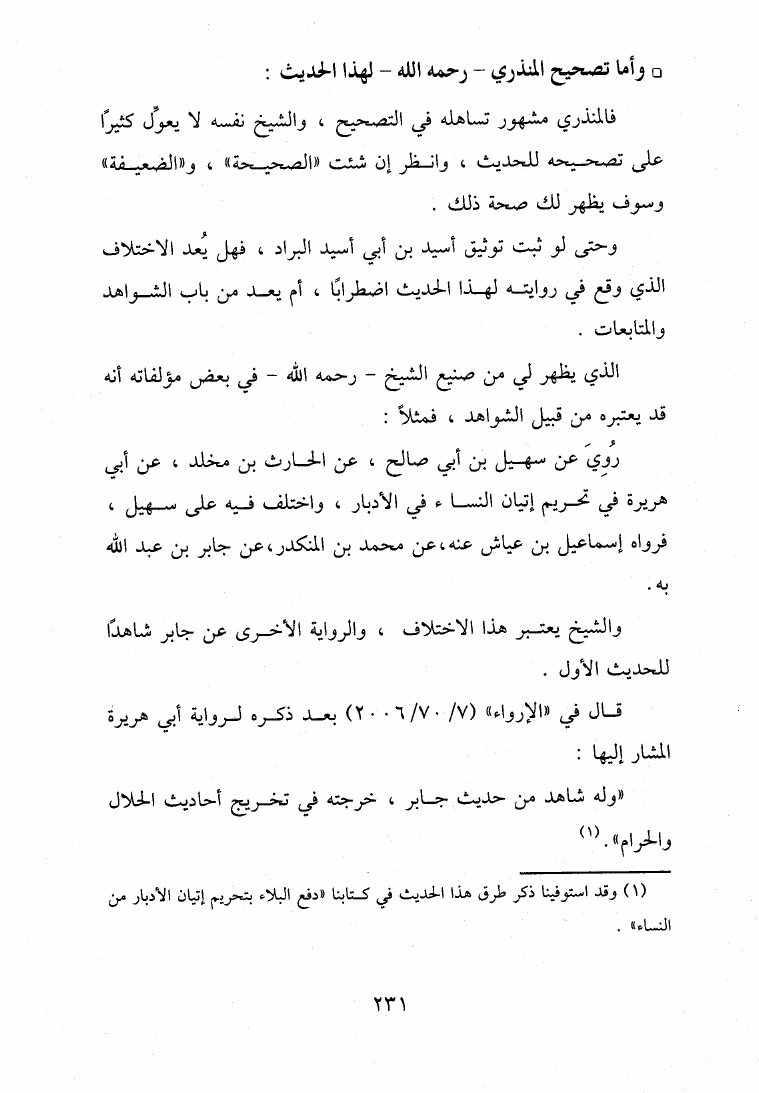 □ وأما تصحيح المنذري – رحمه الله – لهذا الحديث :
فالمنذري مشهور تساهله في التصحيح ، والشيخ نفسه لا يعوِّل كثيرًا
على تصحيحه للحديث ، وانظر إن شئت «الصحيحة» ، و«الضعيفة»
وسوف يظهر لك صحة ذلك .
وحتى لو ثبت توثيق أسيد بن أبي أسيد البراد ، فهل يُعد الاختلاف
الذي وقع في روايته لهذا الحديث اضطرابًا ، أم يعد من باب الشواهد
والمتابعات .
الذي يظهر لي من صنيع الشيخ – رحمه الله – في بعض مؤلفاته أنه
قد يعتبره من قبيل الشواهد ، فمثلاً :
رُوِيَ عن سهيل بن أبي صالح ، عن الحارث بن مخلد ، عن أبي
هريرة في تحريم إتيان النساء في الأدبار ، واختلف فيه على سهيل ،
فرواه إسماعيل بن عياش عنه، عن محمد بن المنكدر، عن جابر بن عبد الله
به.
والشيخ يعتبر هذا الاختلاف ، والرواية الأخرى عن جابر شاهدًا
للحديث الأول .
قال في «الإرواء» (٧/ ٧٠/ ٢٠٠٦) بعد ذكره لرواية أبي هريرة
المشار إليها :
«وله شاهد من حديث جابر ، خرجته في تخريج أحاديث الحلال
والحرام».(١)
(١) وقد استوفينا ذكر طرق هذا الحديث في كتابنا «دفع البلاء بتحريم إتيان الأدبار من
النساء» .
٢٣١